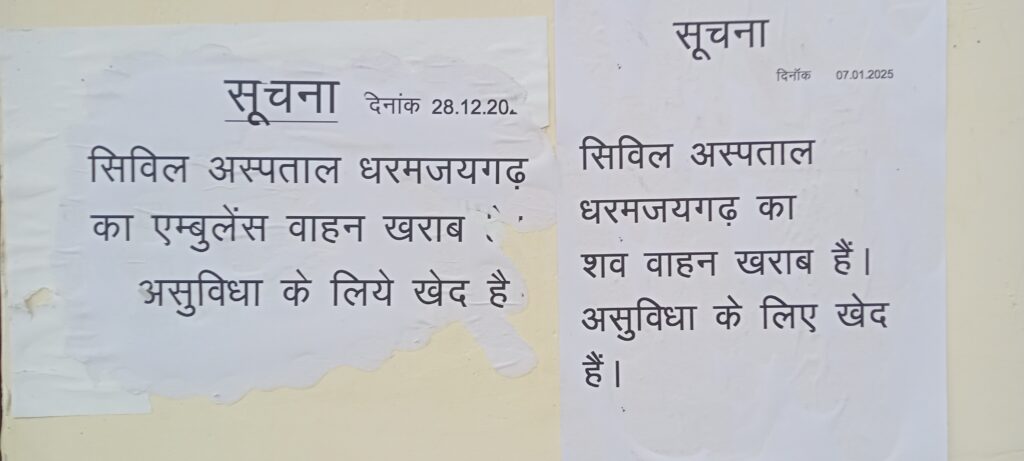 सूचना दिनांक 28.12.20
सिविल अस्पताल धरमजयगढ़
का एम्बुलेंस वाहन खराब
असुविधा के लिये खेद है
सूचना
दिनॉक 07.01.2025
सिविल अस्पताल
धरमजयगढ़ का
शव वाहन खराब हैं।
असुविधा के लिए खेद
हैं।